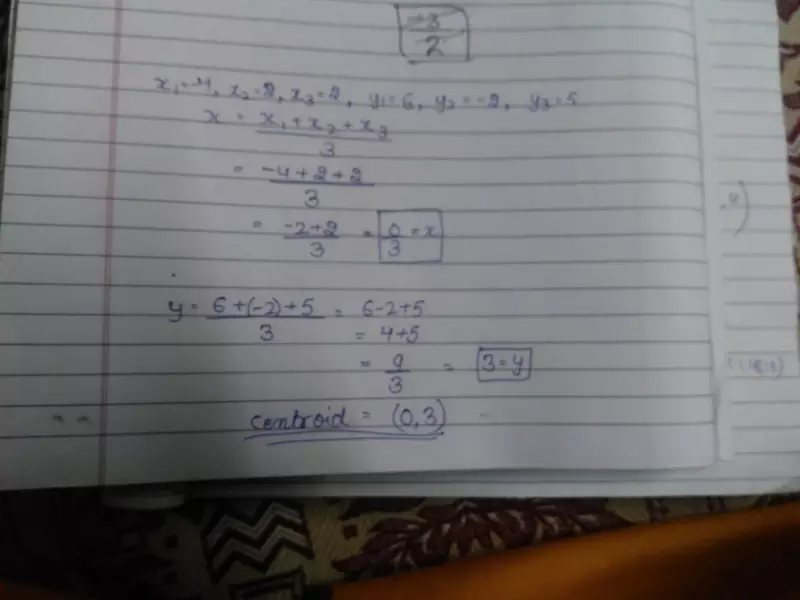 -3/2
x₁=-4, x₂=2, x₃=2, y₁=6, y₂=-2, y₃=5
x = x₁+x₂+x₃/3
= -4+2+2/3
= -2+2/3 = 0/3 = x
y = 6+(-2)+5/3 = 6-2+5
= 4+5
= 9/3 = 3=y
centroid = (0,3)